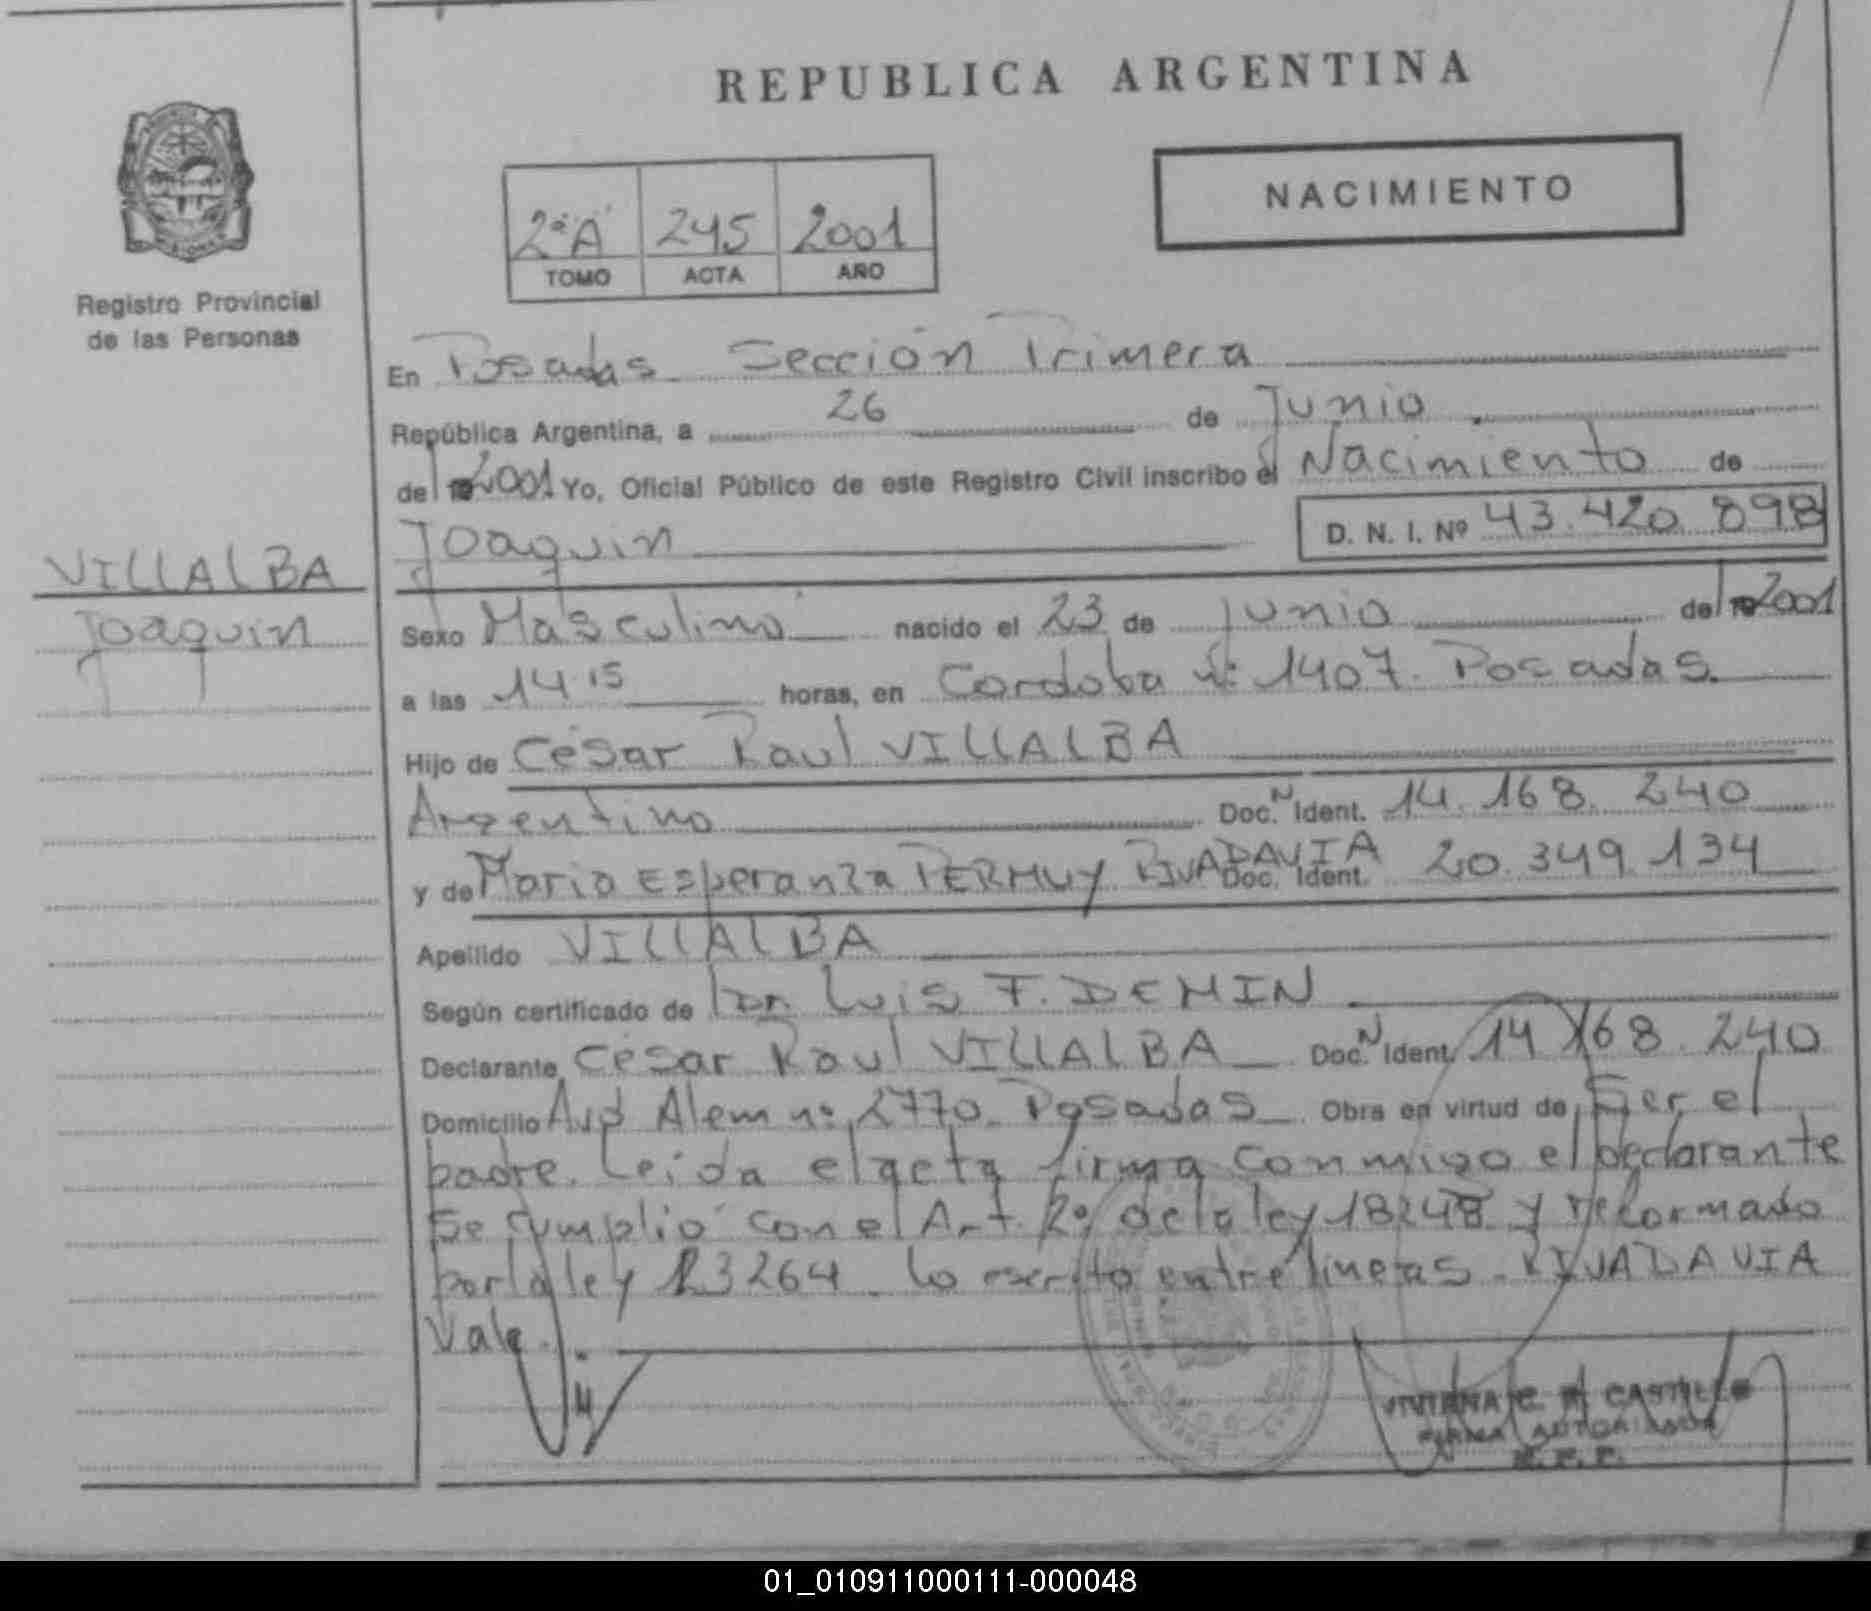 REPUBLICA ARGENTINA
NACIMIENTO
2º "A" 245 2001
TOMO ACTA AÑO
Registro Provincial
de las Personas
VILLALBA
Joaquin
En Posadas Sección Primera
República Argentina, a 26 de Junio
del 2001 Yo, Oficial Público de este Registro Civil inscribo el Nacimiento de
Joaquin D. N. I. Nº 43.420.898
Sexo Masculino nacido el 23 de junio del 2001
a las 14.15 horas, en Cordoba nº 1407. Posadas.
Hijo de César Raul VILLALBA
Argentino Doc. N Ident. 14.168.240
y de Maria Esperanza PERMUY RIVADAVIA Doc. Ident. 20.349.134
Apellido VILLALBA
Según certificado de Dr. Luis F. DEMIN
Declarante César Raul VILLALBA Doc. N Ident. 14.168.240
Domicilio Avd Alem nº 2770 Posadas Obra en virtud de Ser el
padre. Leida el acta firma conmigo el declarante
Se cumplió con el Art. 2º de la ley 18248 y reformado
por la ley 23264. Lo escrito entre lineas. RIVADAVIA
Vale.
C. M. CASTILLO
FIRMA AUTORIZADA
R. P. P.
01_010911000111-000048